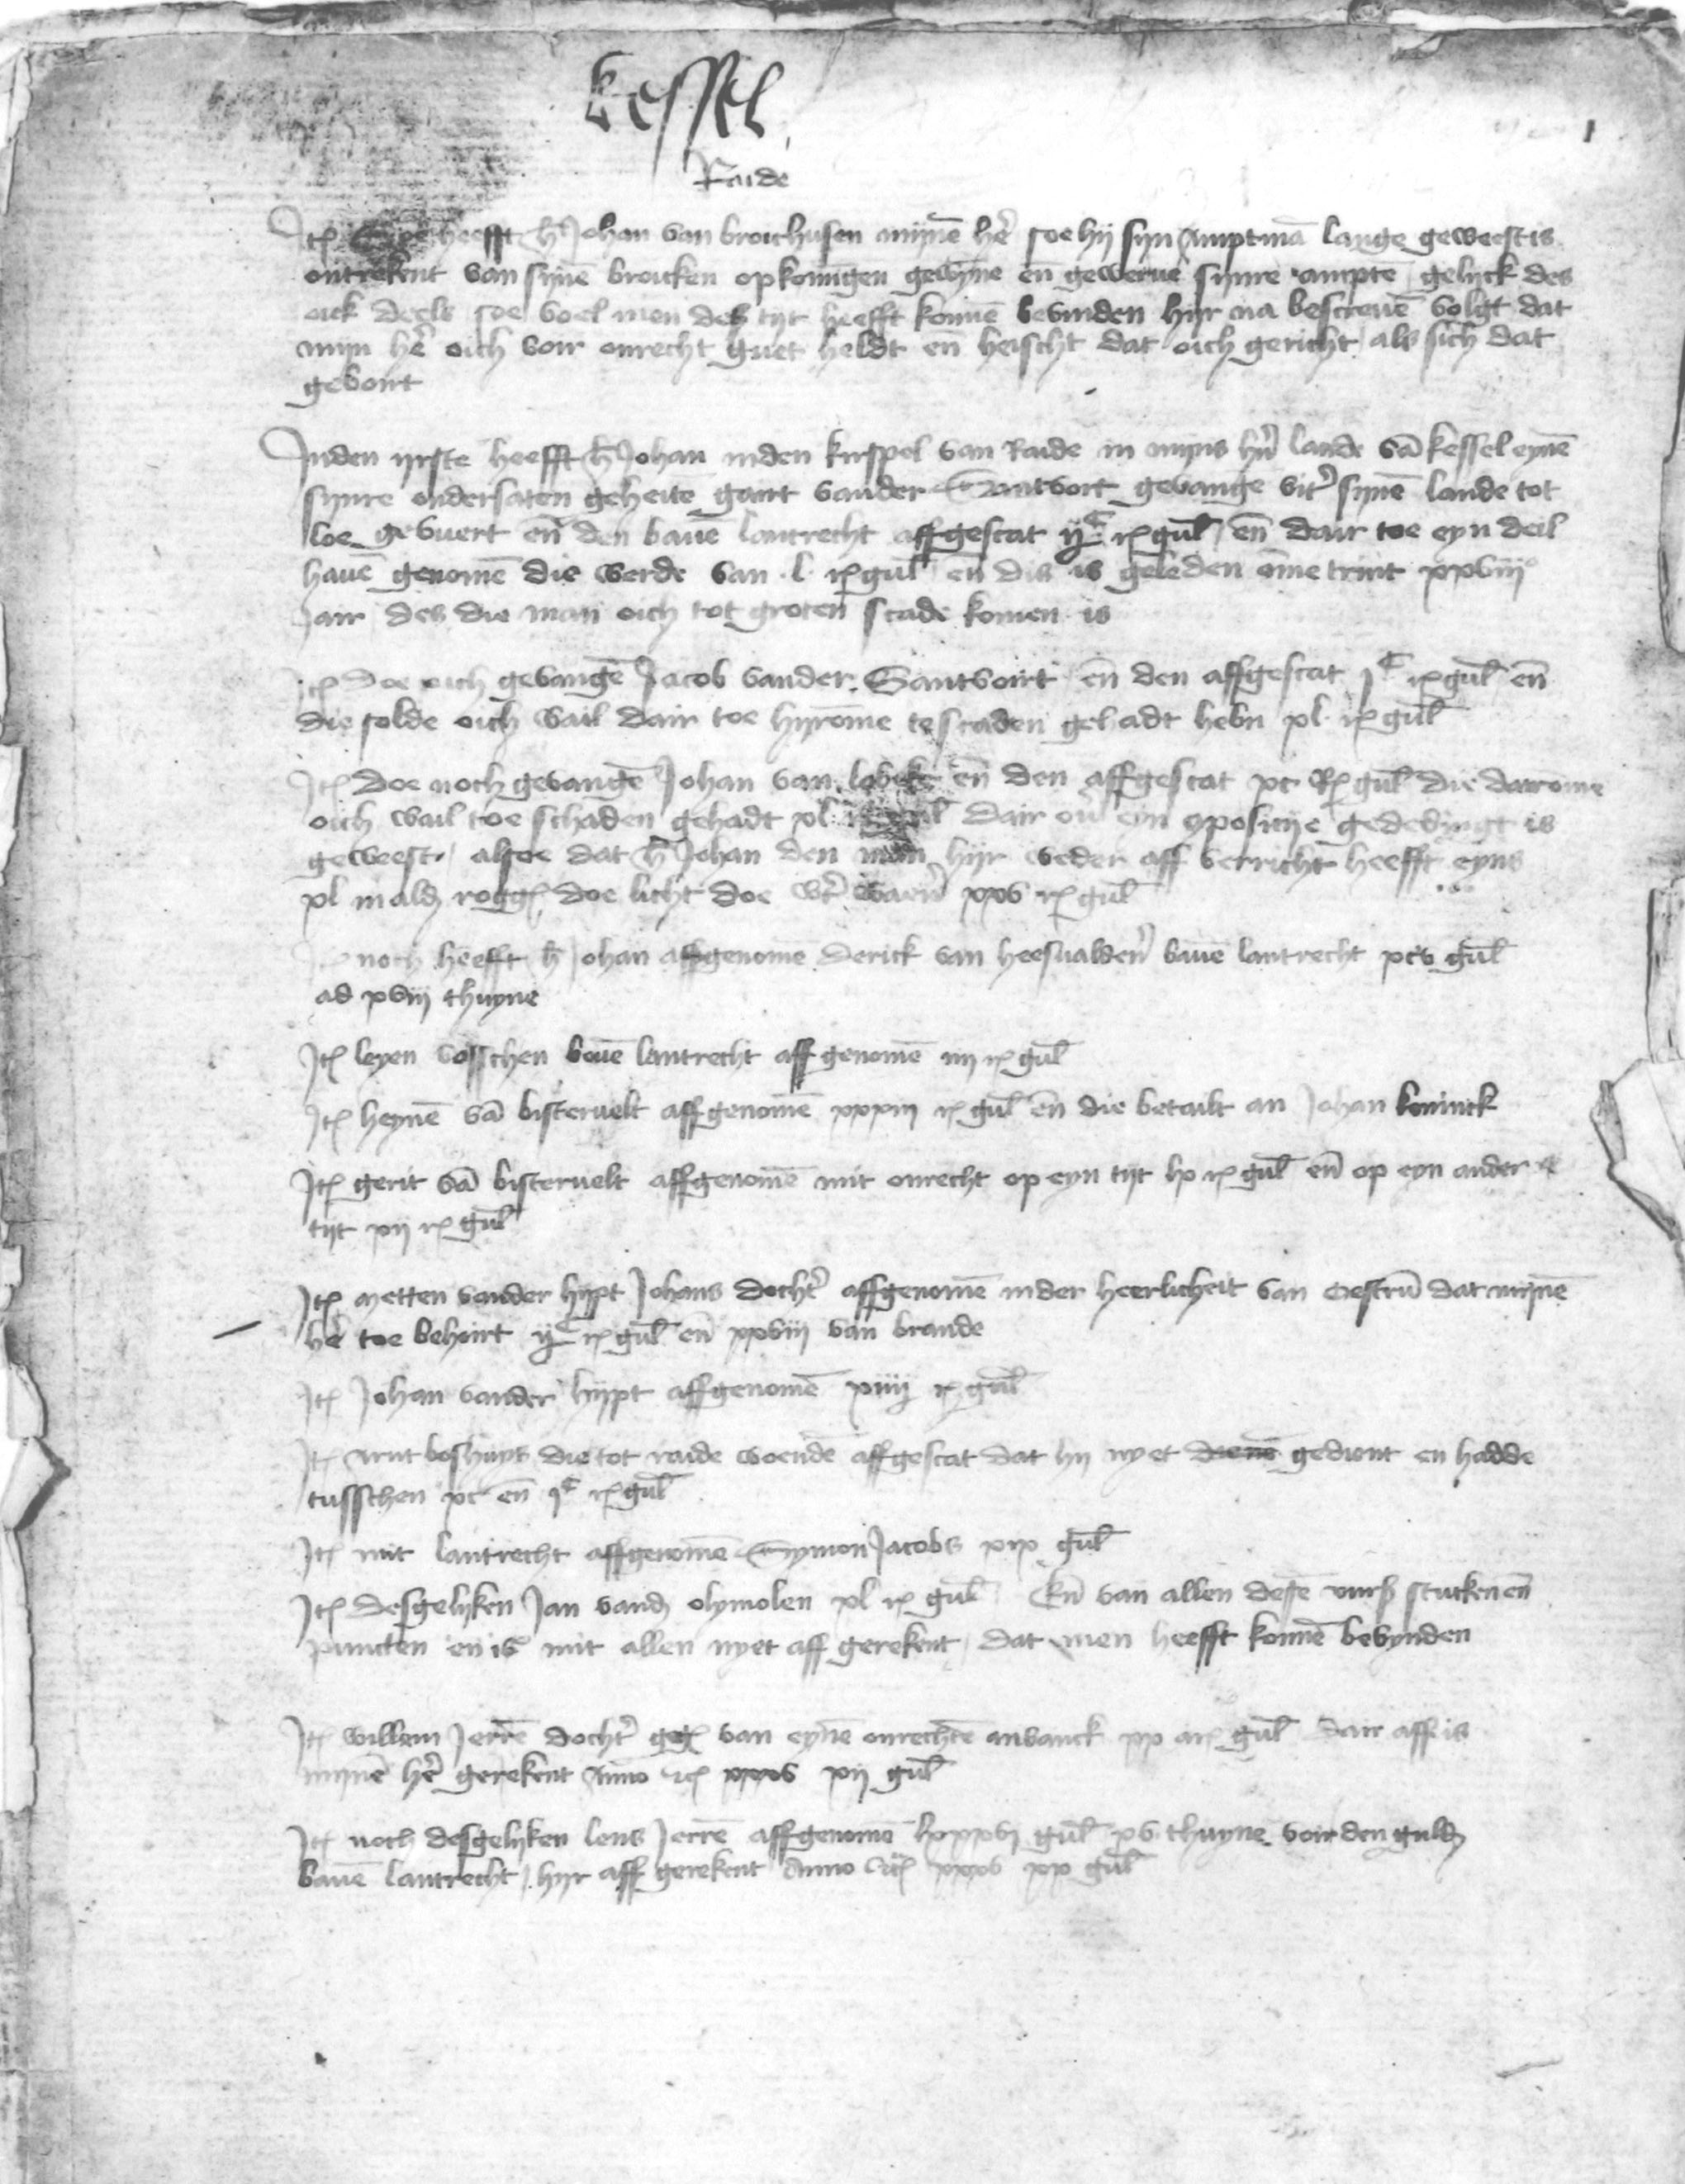 Kessel
1
Raide
Itē heefft h̄ Johan van broichusen mijnē hē soe hij syn Amptmā lange geweest is
ontrekent van synē broicken opkomīgen gewyne en̄ gewerue synre amptē gelyck des
oick deels soe voel men des tyt heefft konnē bevinden hijr na bescreuē volgt dat
mijn hē oich voir onrecht guet heldt en̄ heischt dat oich gericht als sich dat
geboirt
Inden yrste heefft h̄ Johan inden kirspel van Raide in mijns hrn̄ lande vā kessel eynē
synre ondersaten geheite gairt vander Santvort gevange vit synē lande tot
loe gevuert en̄ den bauē lantrecht affgescat ijC rꝭ gul̄ en̄ dair toe eyn deil
hauē genomē die werde van .l. rꝭ gul̄ en̄ dis is geleden ōme trint xxviij
Jair des die man oich tot groten scade komen is
Itē doe oich gevangē Jacob vander Santvoirt en̄ den affgescat jC rꝭ gul̄ en̄
die solde oich wail dair toe hijrōme te scaden gehadt hebn xl rꝭ gul̄
Itē doe noch gevangē Johan van en̄ den affgescat xc Rꝭ gul̄ die dairōme
oich wail toe schaden gehadt xl dair ou̅ eyn ꝯposicije gededyngt is
geweest alsoe dat h̄ Johan den man hijr weder aff verricht heefft eyns
xl mald rogg doe licht doe wt waen̄ xxv rꝭ gul̄
noch heefft h̄ Johan affgenomē derick van heesualden̄ bauē lantrecht xcv gul̄
ad xviij thuyne
Itē leyen vosschen bouē lantrecht aff genomē iiij rꝭ gul̄
Itē heynē vā bisteruelt affgenomē xxxiij rꝭ gul̄ en̄ die betailt an Johan koninck
Itē gerit vā bisteruelt affgenomē mit onrecht op eyn tijt lx rꝭ gul̄ en̄ op eyn ander
tijt xij rꝭ gul̄
Itē metten vander hijpt Johans docht̄ affgenomē inder heerlicheit van oestrū dat mijnē
hē toe behoirt ijC rꝭ gul̄ en̄ xxviij van brande
Itē Johan vander hijpt affgenomē xiiij rꝭ gul̄
Itē arnt boshuys die tot raide woendē affgescat dat hij nyet dienē gedient en hadde
tusschen xc en̄ jC rꝭ gul̄
Itē mit lantrecht affgenomē Symon Jacobs xix gul̄
Itē desgelyken Jan vand olymolen xl rꝭ gul̄ En̄ van allen desse vurß stucken en̄
puncten en is mit allen nyet aff gerekent dat men heefft konnē bevynden
Itē willem Jerrē docht̄ van eynē onrechtē anvanck xx ar gul̄ dair aff is
mijnē hē gerekent Anno xxxv xij gul̄
Itē noch desgelyken lens Jerrē affgenomē lxxxvj gul̄ xv thuyne voir den guld
bauē lantrecht hijr aff gerekent Anno xxxv xx gul̄